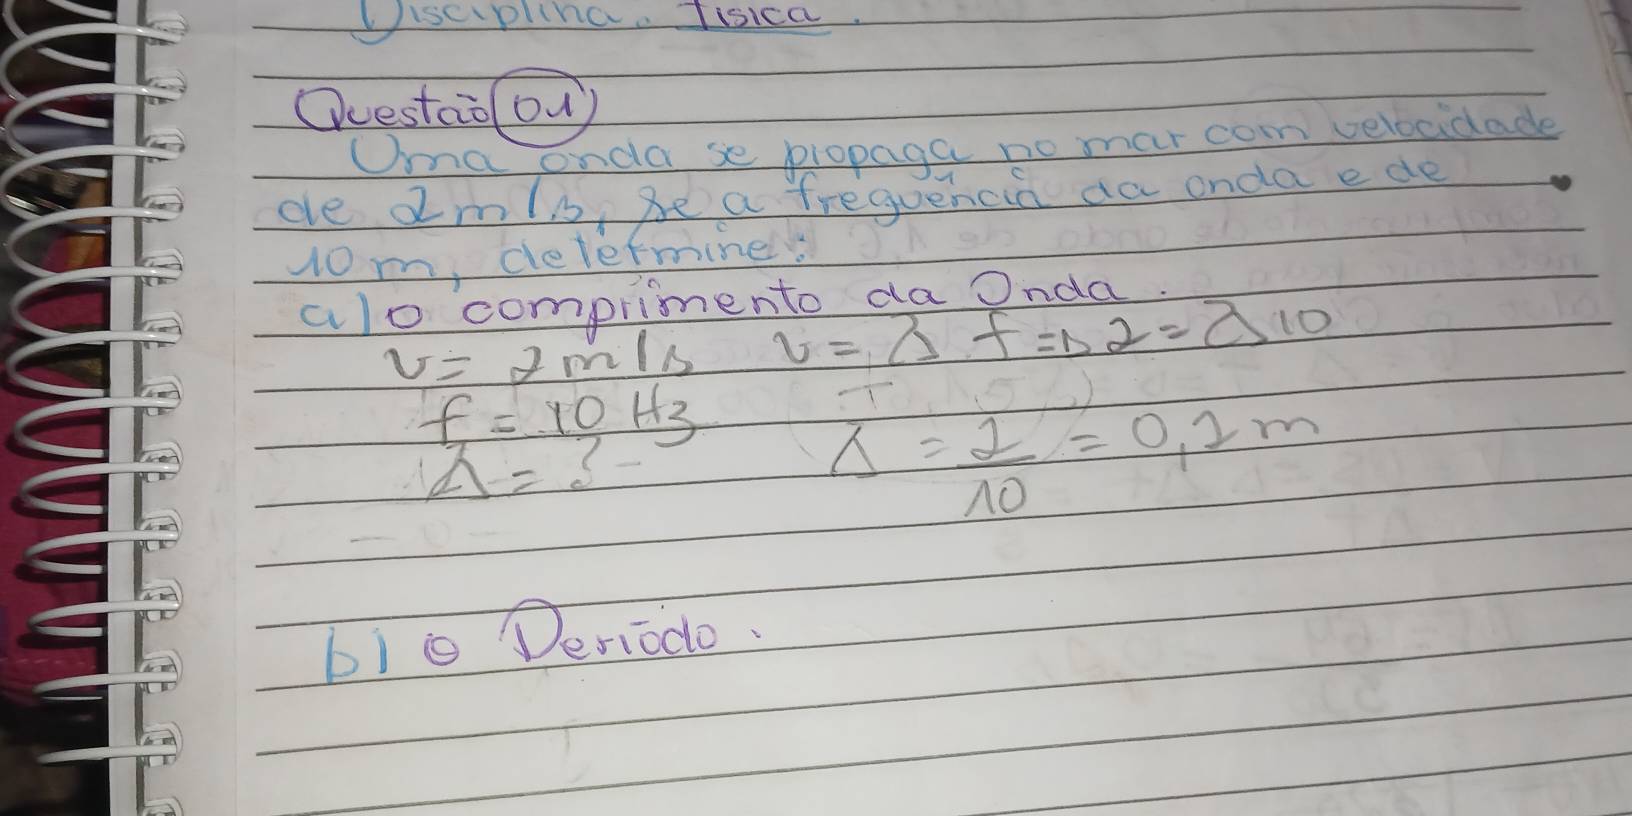 Disciplina. Física.
Questão 01
Uma onda se propaga no mar com velocidade
de 2m/s, se a frequência da onda e de
10m, determine:
a) o comprimento da Onda.
v = 2m/s v = λ f => 2 = λ 10
f = 10 Hz
λ = ? λ = 2/10 = 0,2 m
b) o Período.